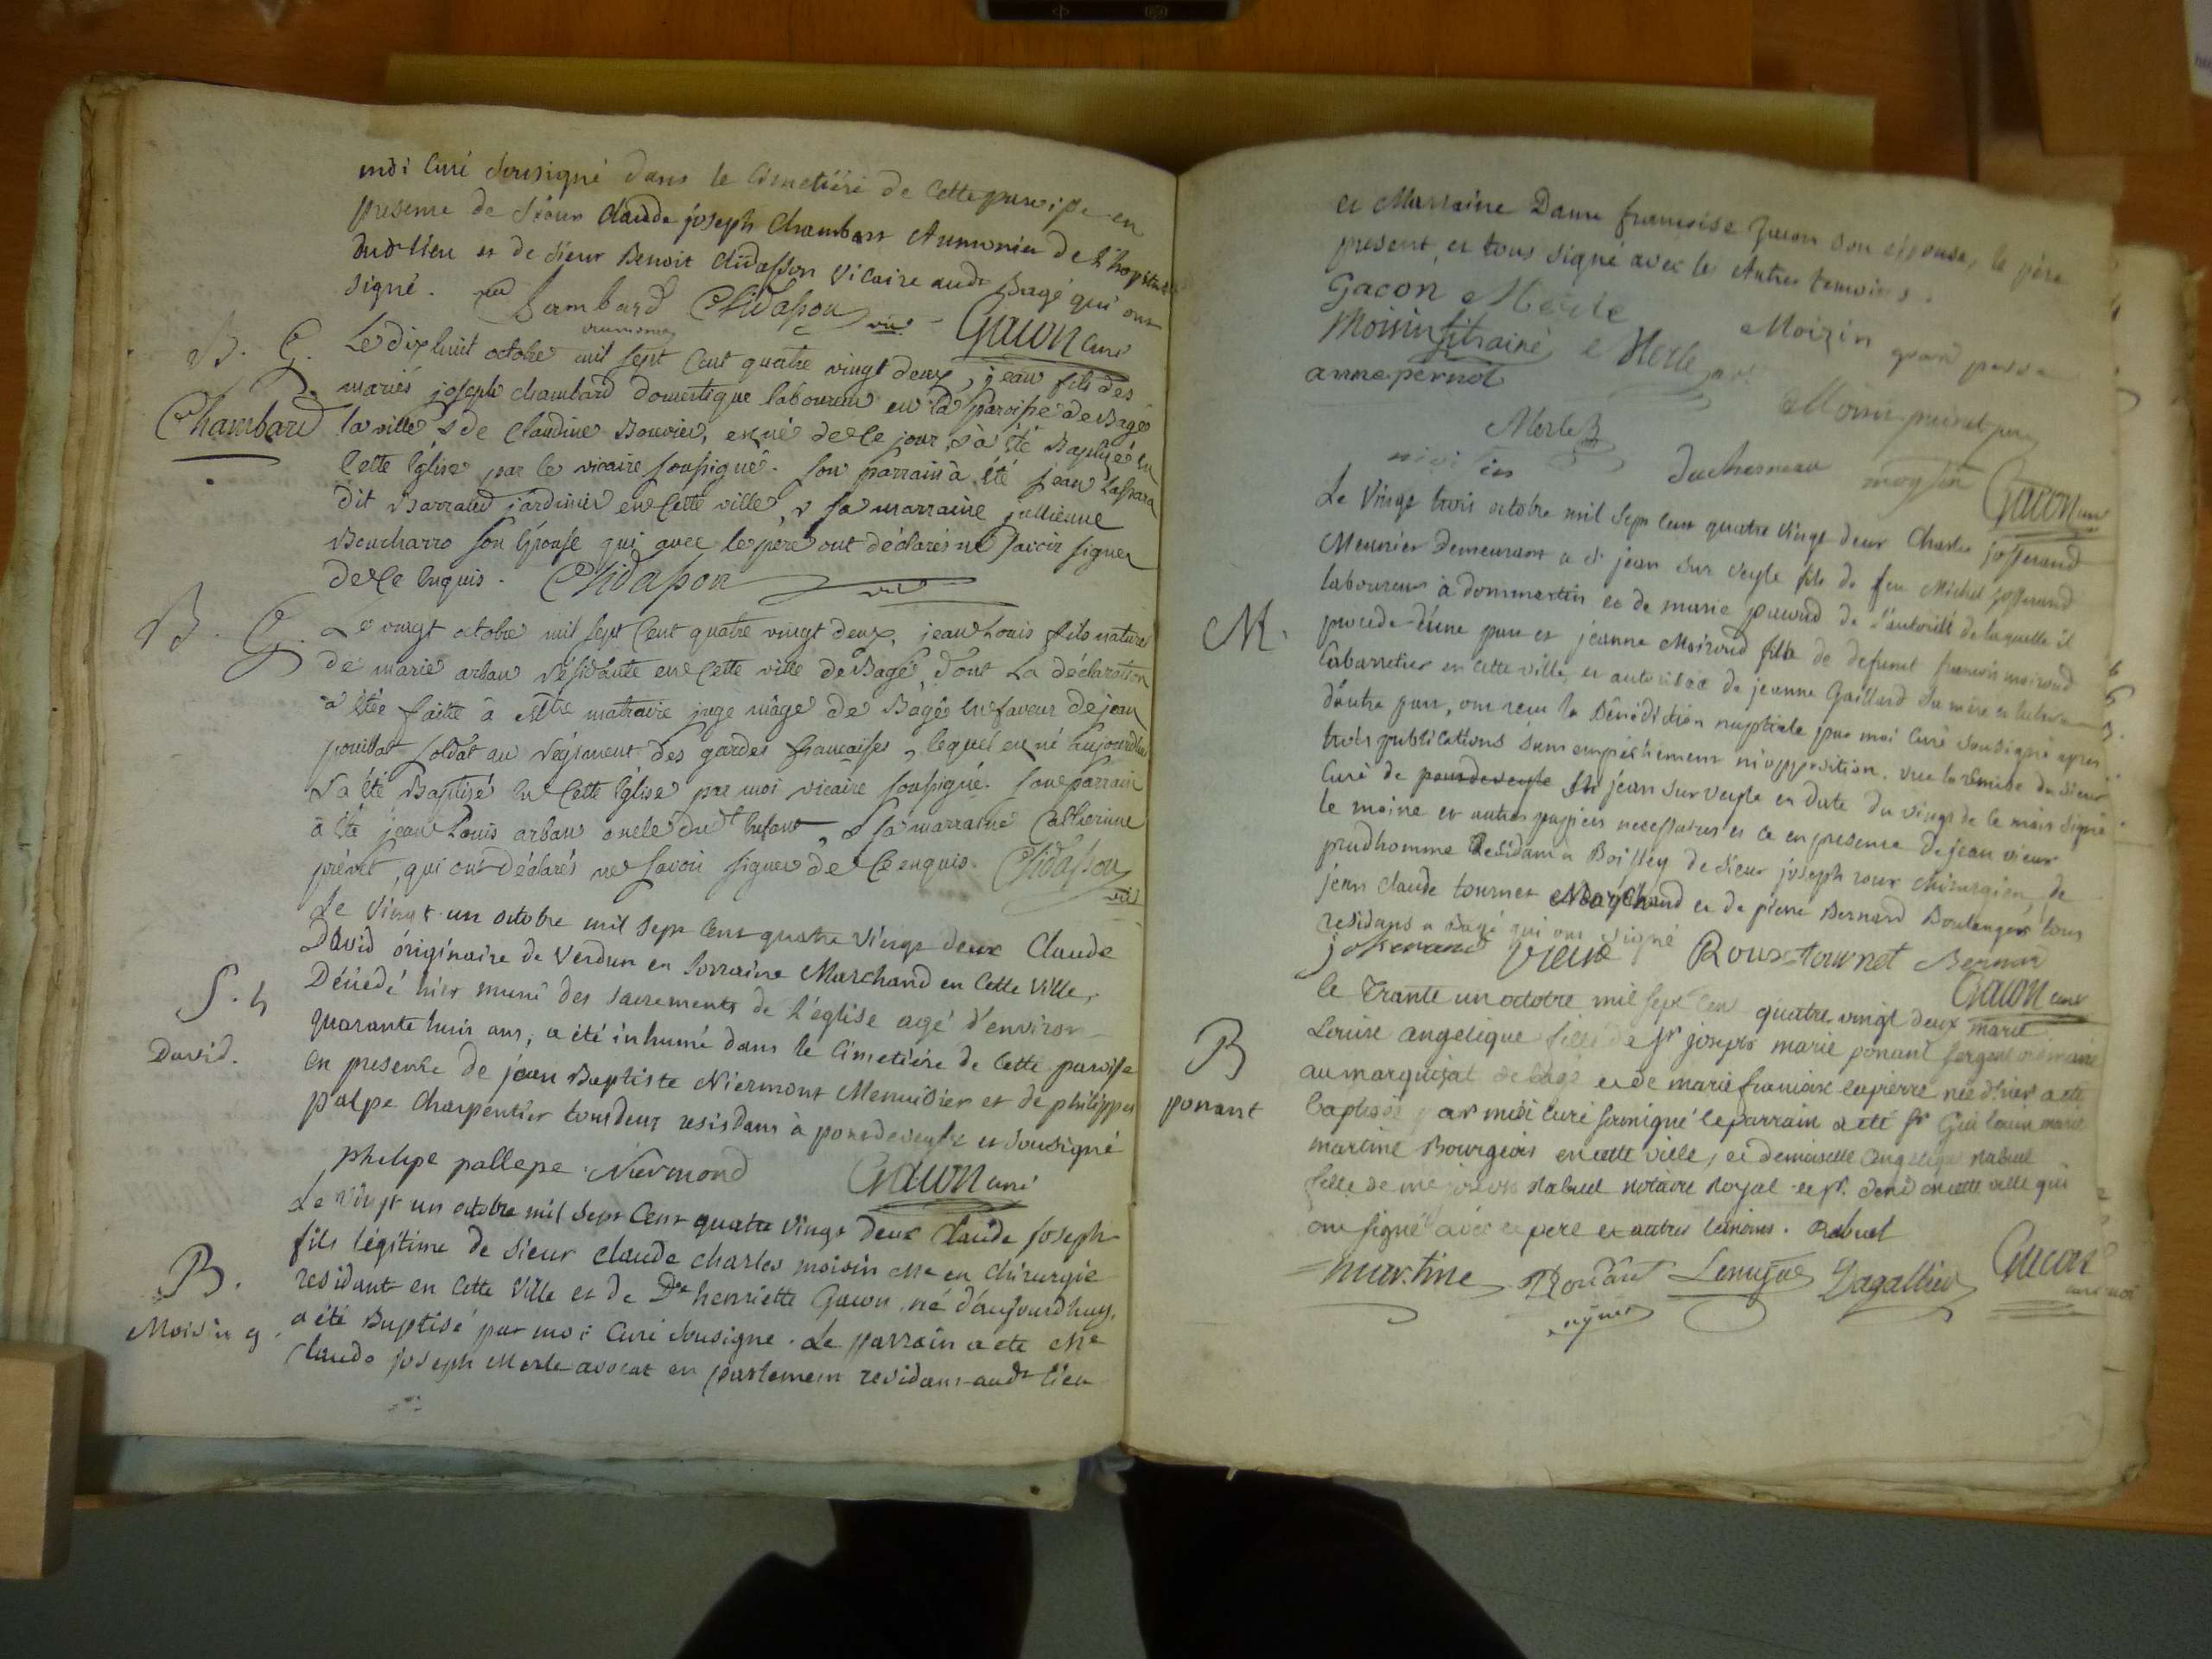 moi Curé sousigné dans le Cimetiére de Cette paroisse en
presence de Sieur Claude joseph Chambart Aumonier de l'hopital
dud lieu et de sieur Benoit Chidasson Vicaire audt Bagé qui ont
signé. Chambard Chidasson vic Gacon Curé
B. G. Le dixhuit octobre mil sept cent quatre vingt deux, jean fils des
mariés joseph chambard domestique laboureur en la paroisse de Bagé
Chambard la ville & de Claudine Bouvier, est né de ce jour & à été Baptisé en
Cette Eglise par le vicaire soussigné. son parrain à été jean
dit Barraud jardinier en Cette ville, & sa marraine jullienne
Boucharro son Epouse qui avec le pere ont déclarés ne savoir signer
de ce Enquis. Chidasson vic
B. G. Le vingt octobre mil sept Cent quatre vingt deux, jean Louis fils naturel
de marie arban résidante en Cette ville de Bagé, dont la déclaration
à étée faitte à Mtre matraire juge mâge de Bâgé en faveur de jean
pouillat soldat au Régiment des gardes françaises, lequel est né aujourdhui
& a été Baptisé en Cette Eglise par moi vicaire soussigné. son parrain
à été jean Louis arban oncle dudt Enfant, & sa marraine Catherine
prévet, qui ont déclarés ne savoir signer de Ce enquis. Chidasson vic
Le Vingt un octobre mil sept Cent quatre Vingt deux Claude
David originaire de Verdun en Lorraine Marchand en Cette Ville,
S. h Décédé hier muni des sacrements de l'église agé d'environ
David. quarante huit ans, a été inhumé dans le Cimetiére de Cette paroisse
en presence de jean Baptiste Niermont Menuisier et de philippe
palpe Charpentier tous deux residans à pontdeveyle et sousigné
philipe pallepe Niermond Gacon curé
Le vingt un octobre mil sept Cent quatre Vingt deux Claude joseph
fils légitime de sieur Claude Charles moisin Me en Chirurgie
B. residant en Cette Ville et de De henriette Gacon, né d'aujourdhuy,
Moisin g a été Baptisé par moi Curé sousigné. Le parrain a été Me
Claude joseph Merle avocat en parlement residant audt lieu
et Marraine Dame francoise Gacon son épouse, le père
present, et tous signé avec les Autres temoins.
Gacon Merle Moizin grand
Moisin Merle
anne pernot
Merle
duchesneau moysin Gacon curé
Le Vingt trois octobre mil sept cent quatre Vingt deux Charles josserand
Meunier demeurant a St jean sur Veyle fils de feu Michel josserand
laboureur à dommartin et de marie de l'autorité de laquelle il
M. procede d'une part et jeanne Moiroud fille de defunt francois moiroud
Cabarretier en Cette ville, et autorisée de jeanne Gaillard sa mère et tutrice
d'autre part, ont reçu la Bénédiction nuptiale par moi Curé sousigné apres
trois publications sans empéchement ni opposition. vue la remise du sieur
Curé de pontdeveyle St jean sur veyle en date du vingt de ce mois signé
le moine et autres papiers necessaires et ce en presence de jean vieux
prudhomme residant a Boissey de sieur joseph roux chirurgien, de
jean claude tournet Marchand et de pierre Bernard Boulanger tous
residans a Bagé qui ont signé
josserand vieux Roux tournet Bernard
Gacon curé
le Trante un octobre mil sept Cent quatre vingt deux marie
B Louise angelique fille de sr joseph marie ponant sergent ordinaire
au marquisat de bagé et de marie francoise lapierre née d'hier a été
ponant baptisée par moi curé sousigné le parrain a été sr marie
martine Bourgeois en cette ville, et demoiselle angelique rabuel
fille de me rabuel notaire Royal en cette ville qui
ont signé avec le pere et autres temoins. Rabuel
martine Ponant Dagallier Gacon